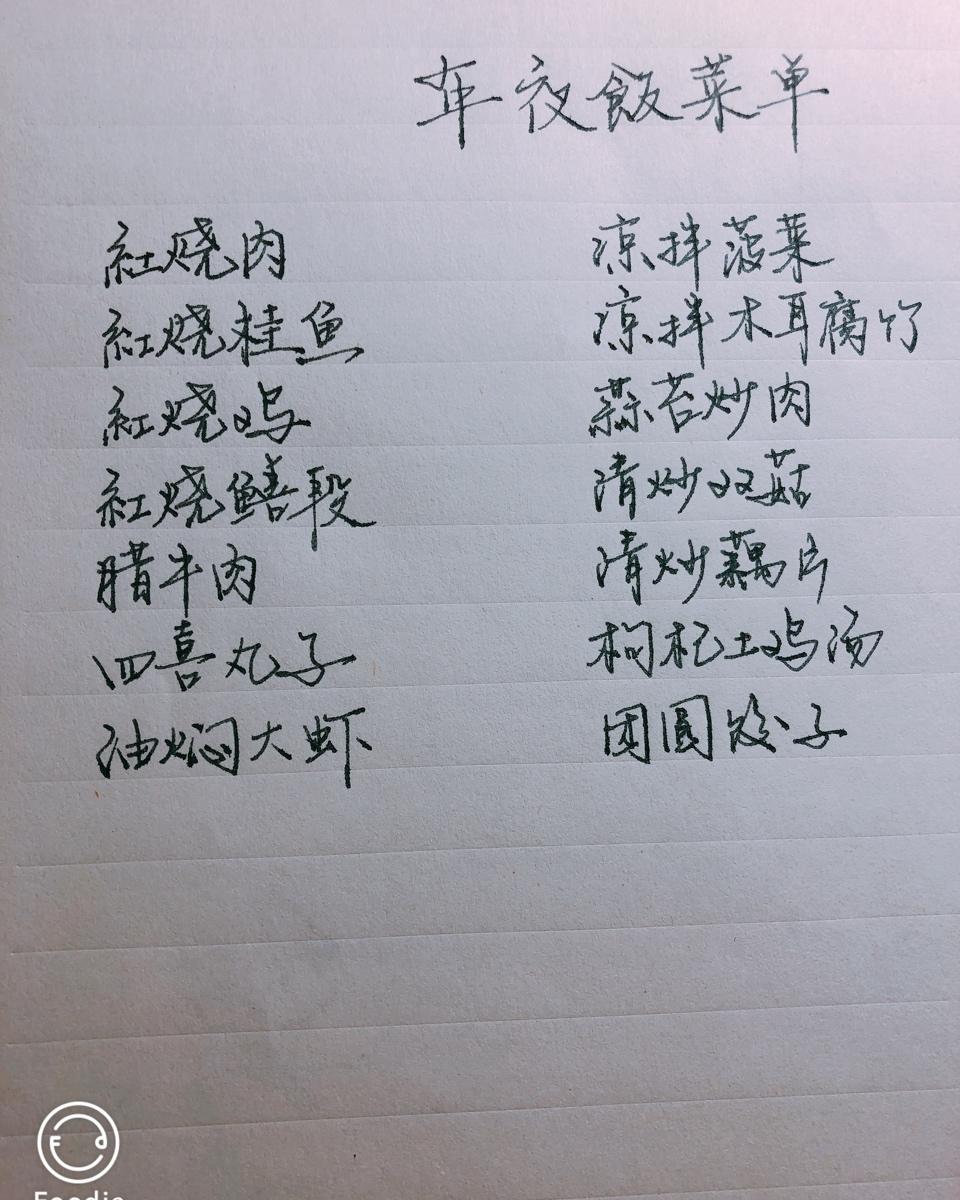 年夜飯菜单
紅烧肉
紅烧桂鱼
紅烧鸡
紅烧鳝段
腊牛肉
四喜丸子
油焖大虾
凉拌菠菜
凉拌木耳腐竹
蒜苔炒肉
清炒双菇
清炒藕片
枸杞土鸡汤
团圆饺子
F d
Foodie